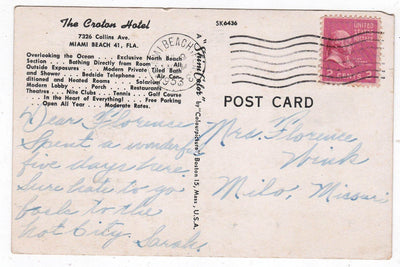 The Croton Hotel
7326 Collins Ave.
MIAMI BEACH 41, FLA.
Overlooking the Ocean . . Exclusive North Beach
Section . . . Bathing Directly from Room . . All
Outside Exposures . . . Modern Private Tiled Bath
and Shower . . Bedside Telephone . . Air Con-
ditioned and Heated Rooms . . Solarium . .
Modern Lobby . . Porch . . Restaurants . .
Theatres . . Nite Clubs . . Tennis . . Golf Course
. . In the Heart of Everything! . . Free Parking
. . Open All Year . . Moderate Rates.
Dear Florence
Spent a wonderful
five days here.
Sure hate to go
back to the
hot City. Sarah.
SK6436
A SpinnColor by "Colourpicture", Boston 15, Mass., U.S.A.
MI BEACH
1953
2 CENTS 2
POST CARD
Mrs. Florence
Wink
Milo, Missouri